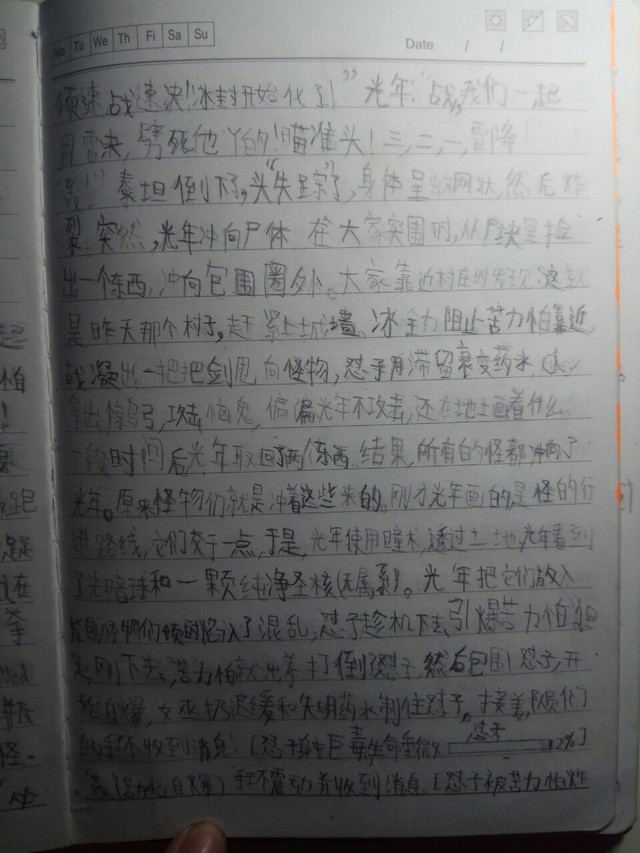 Mo Tu We Th Fr Sa Su
Date / /
速战速决！冰封开始化了！”光年：“战，我们一起
用雷决，劈死他丫的！瞄准头！三，二，一，雷降！
！”泰坦倒下了，头“失踪”了，身体呈网状，然后炸
裂。突然，光年冲向尸体 在大家突围时，从尸块里捡
出一个东西，冲向包围圈外。大家靠近村庄时发现，这就
是昨天那个村子，赶紧上城墙。冰全力阻止苦力怕靠近，
战凝出一把把剑甩向怪物，怼子用滞留衰变药水
拿出弓，攻击恼鬼，偏偏光年不攻击，还在地上画着什么。
一段时间后光年取回了两个东西。结果，所有的怪都冲向了
光年。原来怪物们就是冲着这些来的。刚才光年画的是怪的行
进路线，它们交于一点，于是，光年使用瞳术，透过土地，光年看到
了光暗球和一颗纯净圣核（无属系）。光年把它们放入
怪物们顿时陷入了混乱，怼子趁机下去引爆苦力怕，但
是，刚下去，苦力怕就出拳打倒了怼子，然后包围怼子，开
始自爆，女巫扔迟缓和失明药水制住怼子。接着，队员们
的手环收到消息：［怼子身中巨毒，生命垂微 怼子 2%］
（苦力怕自爆）手环震动并收到消息［怼子被苦力怕炸